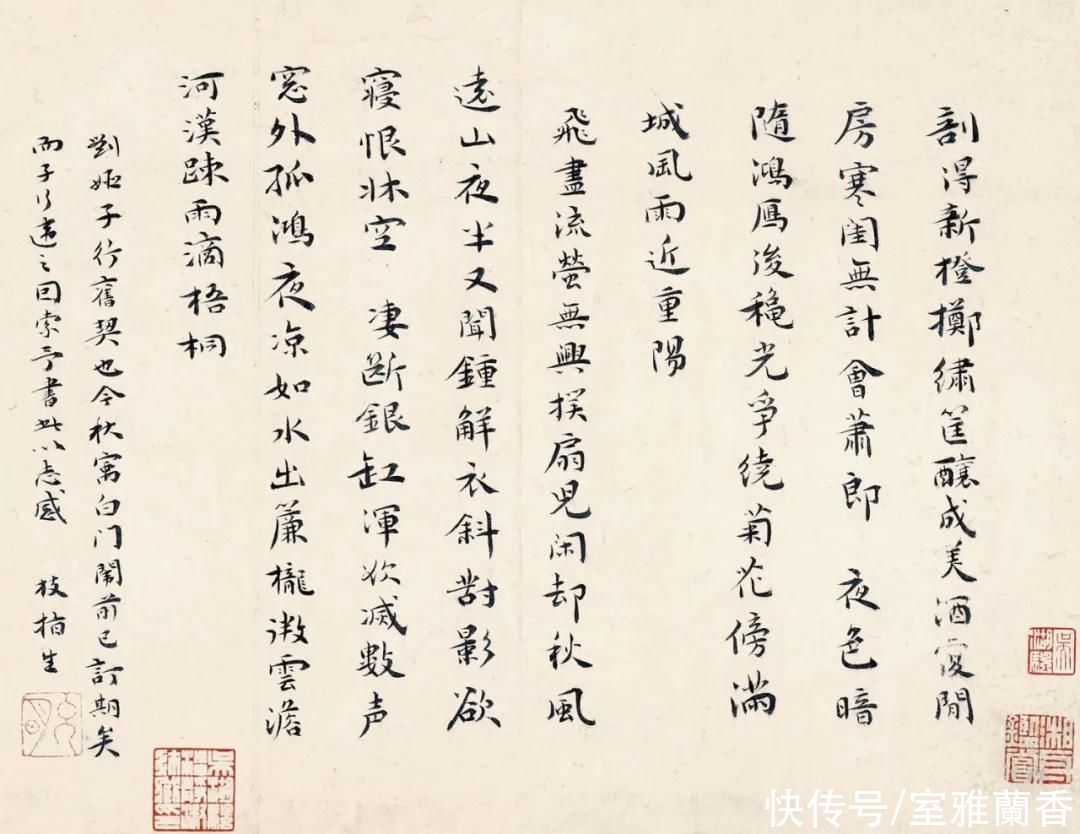 剖得新橙擲繡筐釀成美酒寘閒
房寒閨無計會蕭郎 夜色暗
隨鴻鴈後穐光爭繞菊花傍滿
城風雨近重陽
飛盡流螢無興撲扇兒闲却秋風
遠山夜半又聞鍾解衣斜對影欲
寢恨牀空 凄斷銀缸渾欲滅數声
窓外孤鴻夜凉如水出簾櫳微雲澹
河漢踈雨滴梧桐
劉姬子行舊契也今秋寓白门闈前已訂期矣
而子行遠之因索予書此以志感 枝指生
快传号/室雅蘭香